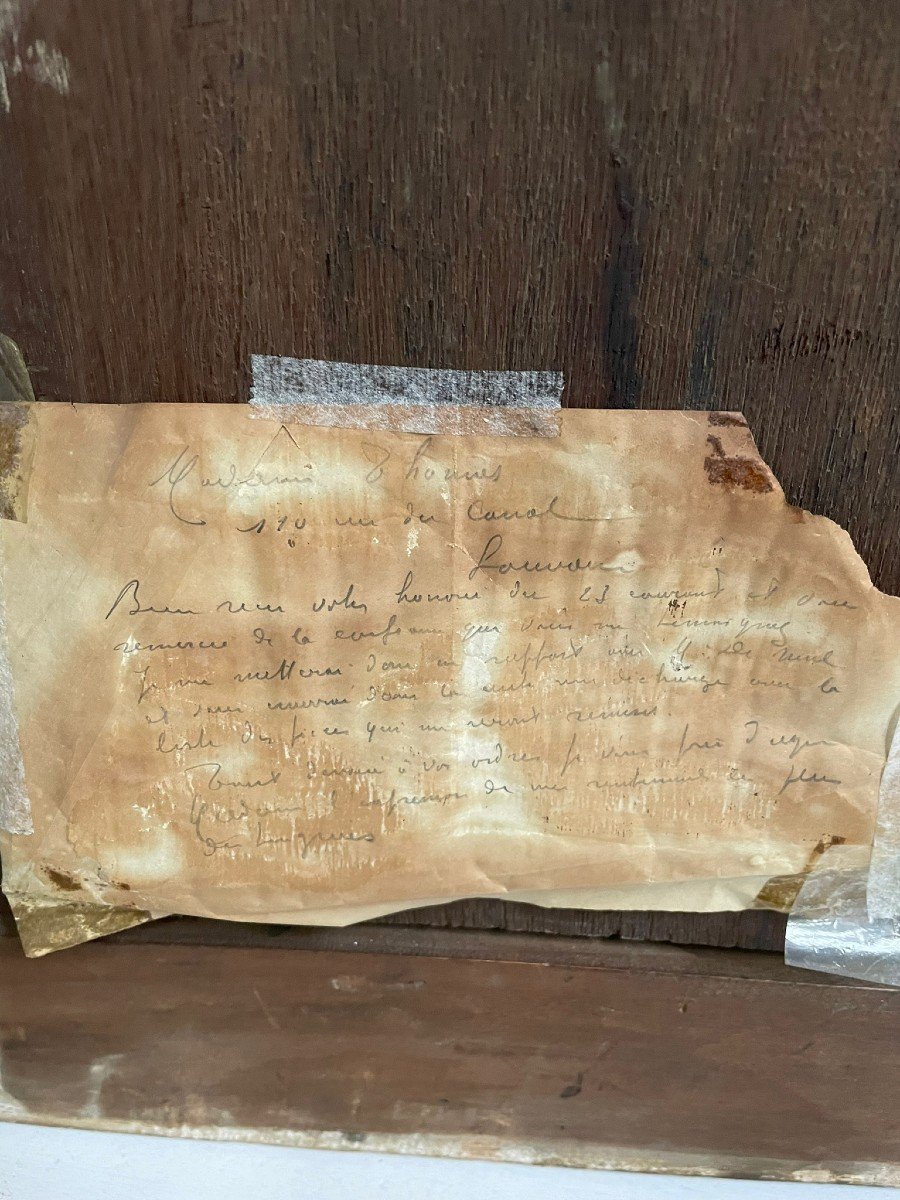 Madame Thomas
110 rue du Canal
Louvain
Bien reçu votre honorée du 23 courant et vous
remercie de la confiance que vous me témoignez
Je me metterai dans en rapport avec M. de
et vous enverrai dans la suite une décharge avec la
liste des pièces qui me seront remises.
Tout dévoué à vos ordres je vous prie d'agréer
Madame l'expression de mes sentiments les plus
distingués